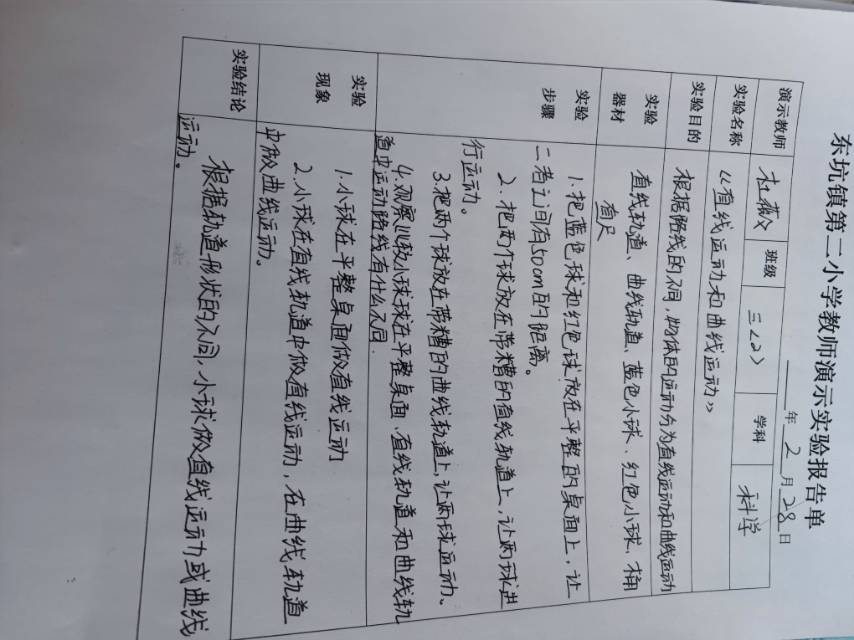 东坑镇第二小学教师演示实验报告单
年 2 月 28 日
演示教师 杜薇 班级 三〈2〉 学科 科学
实验名称 《直线运动和曲线运动》
实验目的 根据路线的不同,物体的运动分为直线运动和曲线运动
实验器材 直线轨道、曲线轨道、蓝色小球、红色小球、桶
直尺
实验步骤 1.把蓝色球和红色球放在平整的桌面上,让
二者之间有50cm的距离。
2.把两个球放在带糟的直线轨道上,让两球进
行运动。
3.把两个球放在带糟的曲线轨道上,让两球运动。
4.观察比较小球球在平整桌面、直线轨道和曲线轨
道中运动路线有什么不同.
实验现象 1.小球在平整桌面做直线运动
2.小球在直线轨道中做直线运动,在曲线轨道
中做曲线运动。
实验结论 根据轨道形状的不同,小球做直线运动或曲线
运动。